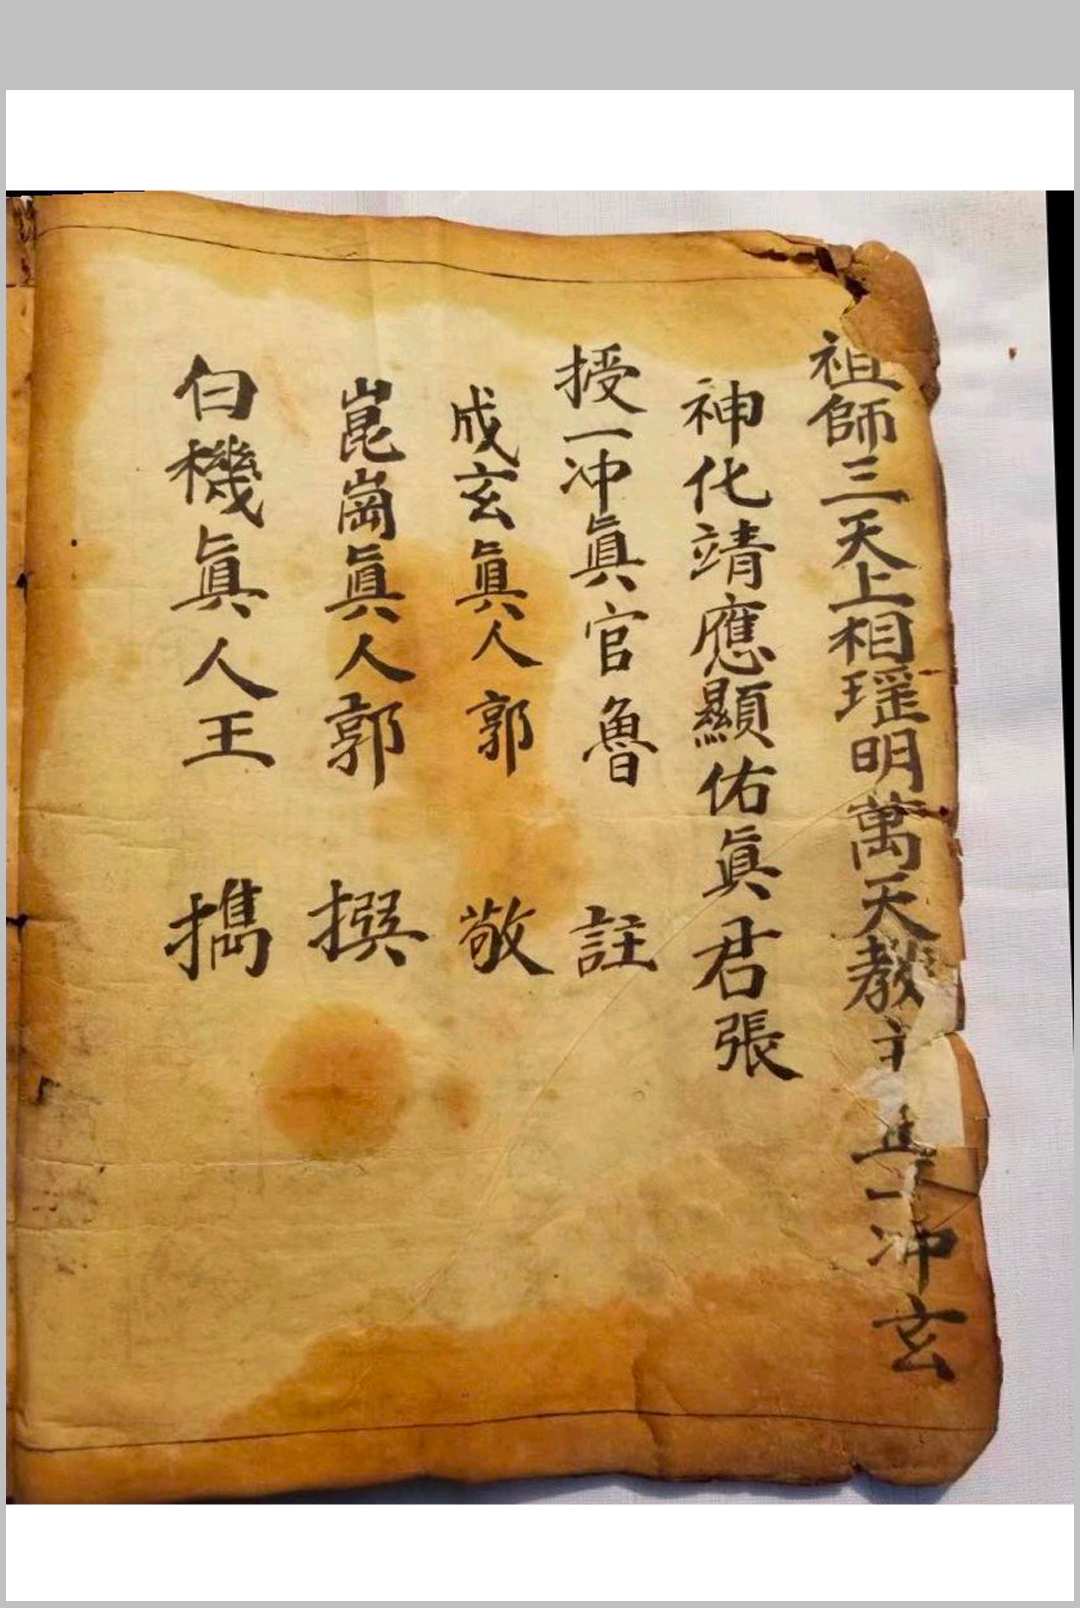 祖師三天上相瑶明萬天教主 一冲玄
神化靖應顯佑眞君張
授一冲眞官魯 註
成玄眞人郭 敬
崑崗眞人郭 撰
白機眞人王 㩦